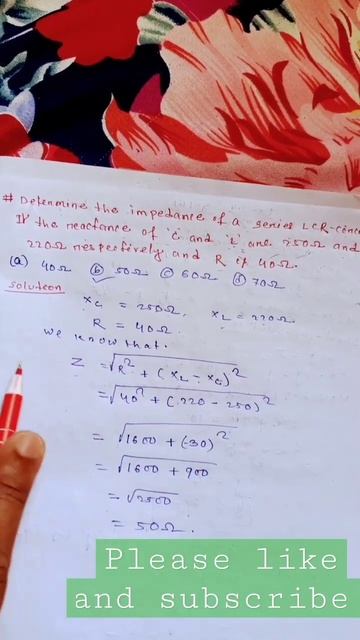 # Determine the impedance of a series LCR-circu
If the reactance of 'C' and 'L' are 250Ω and
220Ω respectively and R is 40Ω.
(a) 40Ω (b) 50Ω (c) 60Ω (d) 70Ω
Soluteon
Xc = 250Ω, XL = 220Ω
R = 40Ω.
we know that.
Z = √R² + (XL - Xc)²
= √40² + (220 - 250)²
= √1600 + (-30)²
= √1600 + 900
= √2500
= 50Ω.
Please like
and subscribe